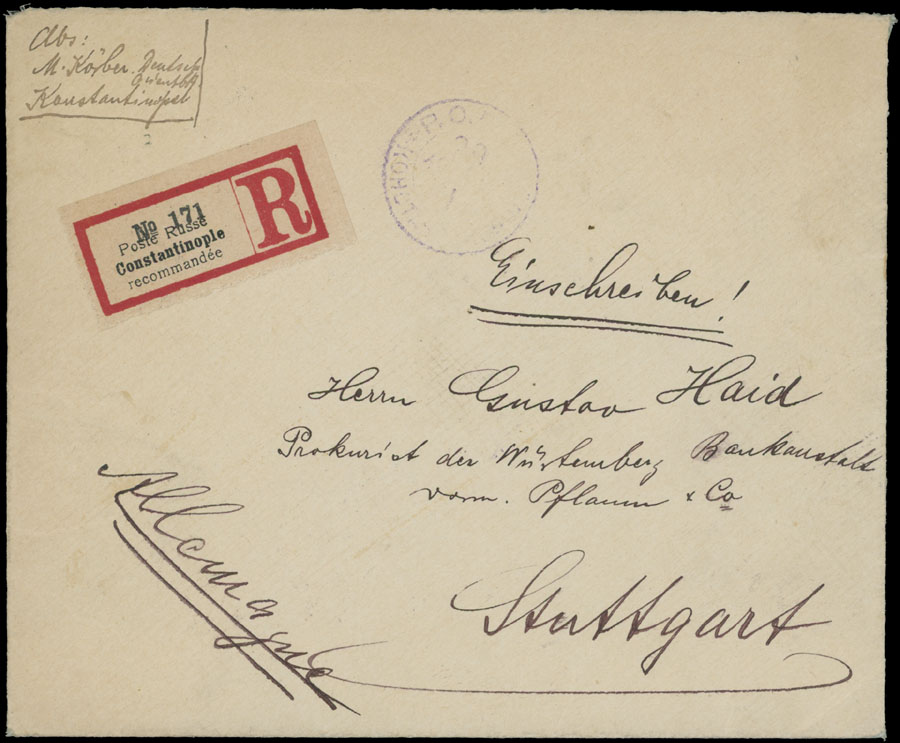 Abs:
M. Körber. Deutsch
Orientbk.
Konstantinopel
No 171
Poste Russe
Constantinople
recommandée
R
Einschreiben!
Herrn Gustav Haid
Prokurist der Würtemberg Bankanstalt
vorm. Pflaum & Co
Allemagne
Stuttgart